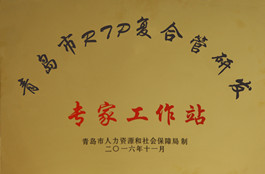 青岛市RTP复合管研发
专家工作站
青岛市人力资源和社会保障局 制
二〇一六年十一月